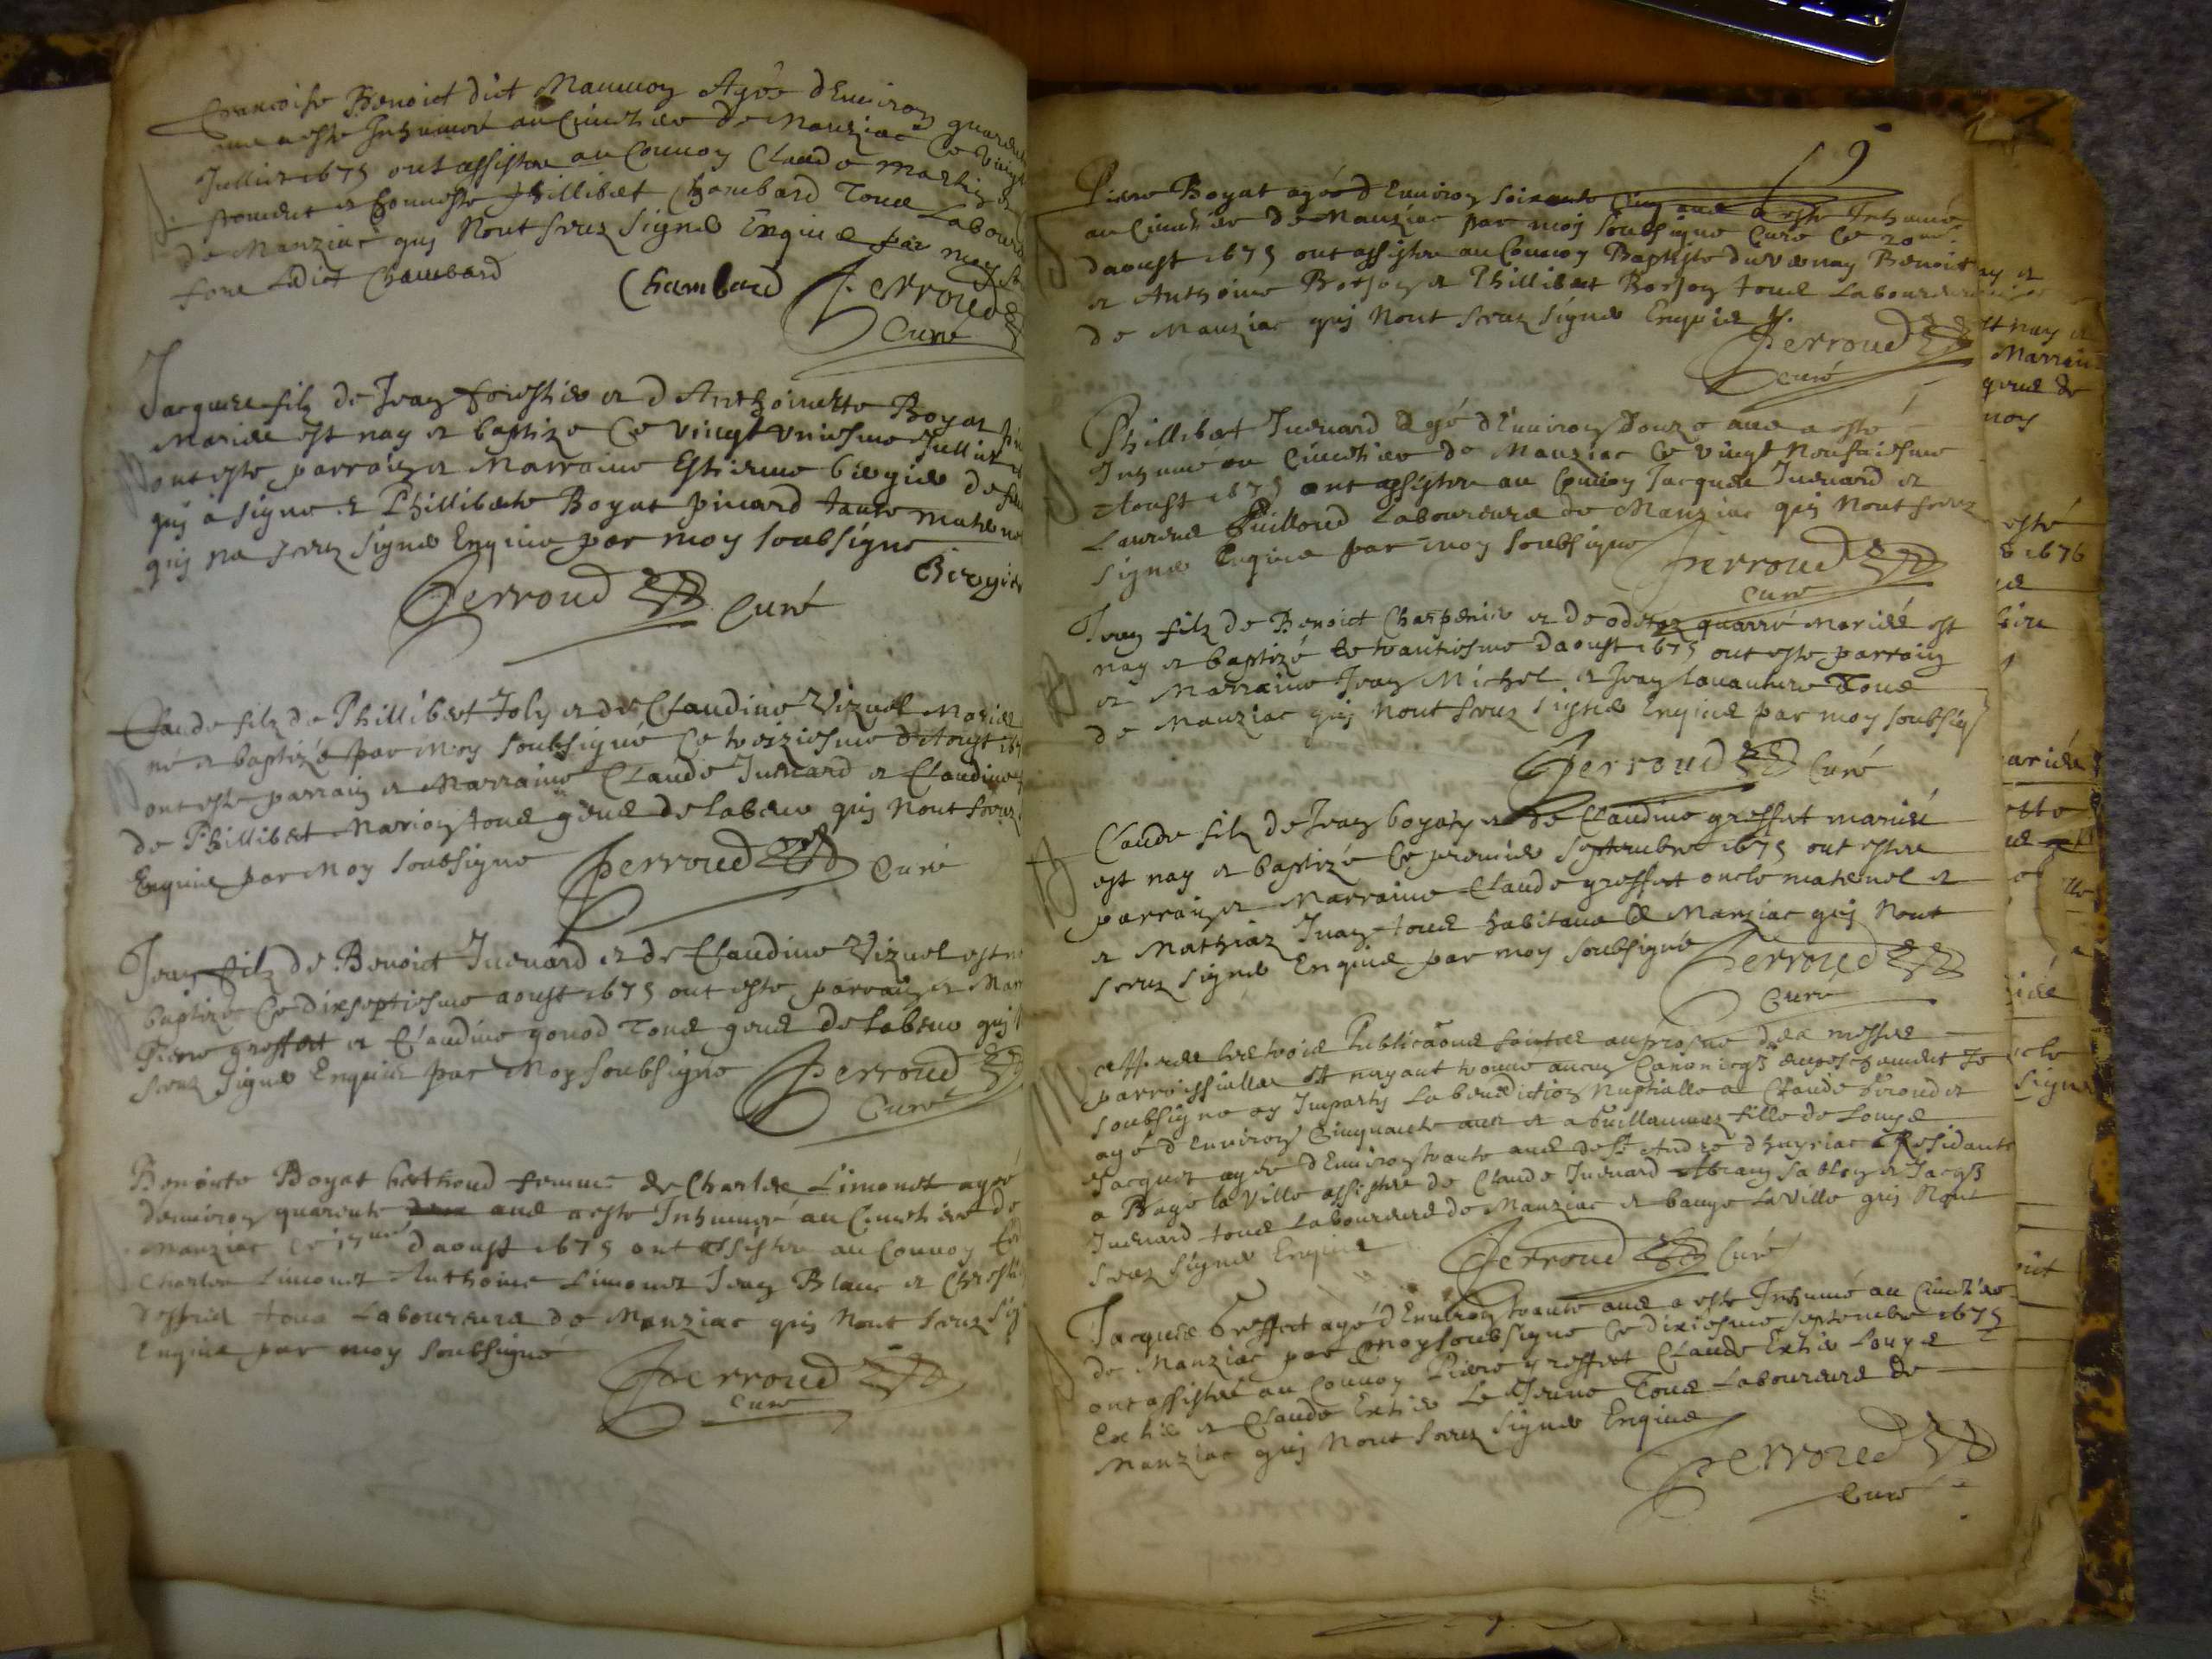 Francoise Benoict dict Maunoy Agée dEnviron quarante
ans a esté Inhumée au Cimetiere de Manziac Ce vingt
Juillet 1675 ont assisté au Convoy Claude Martin et
honneste Phillibert Chambard Tous Labour
de Manziac quy Nont sceuz signer Enquis par moy
fors Ledict Chambard
Chambard Perroud
Curé
Jacques filz de Jean forestier et d Anthoinette Boyat
Mariés est nay et baptizé Ce vingt uniesme Juillet
ont esté parrain et Marraine Estienne biergier de
quy a signé et Philliberte Boyat pinard tante mater
quy na sceuz signer Enquise par moy soubsigné
Biergier
Perroud Curé
Claude filz de Phillibert Joly et de Claudine Vizuel Mariés
né et baptizé par Moy soubsigné Ce treiziesme d'Aougt 167
ont esté parrain et Marraine Claude Juenard et Claudine
de Phillibert Marion tous gens de labeur quy Nont sceuz
Enquis par Moy soubsigné
Perroud Curé
Jean filz de Benoict Juenard et de Claudine Vizuel est n
baptizé Ce dixseptiesme aoust 1675 ont esté parrain et Mar
Piere greffet et Claudine gonod Tous gens de labeur quy
sceuz signer Enquis par Moy soubsigné
Perroud
Curé
Benoite Boyat berthoud femme de Charles Limonet agée
denviron quarante ans a esté Inhumée au Cimetiere de
Manziac Ce daoust 1675 ont assisté au Convoy
Charles Limonet Anthoine Limonet Jean Blanc et
tous Laboureurs de Manziac quy Nont sceuz sig
Enquis par moy soubsigné
Perroud
Curé
19
Piere Boyat agé d Environ soixante Cinq ans a esté Inhumé
au Cimetiere de Manziac par moy soubsigné Curé Ce 20me
daoust 1675 ont assisté au Convoy Baptiste duvernay Benoict
et Anthoine Borjon et Phillibert Borjon tous Laboureurs
de Manziac quy Nont sceuz signer Enquis
Perroud
Curé
Phillibert Juenard Agé dEnviron Douze ans a esté
Inhumé au Cimetiere de Manziac Ce vingt Neufviesme
Aoust 1675 ont assisté au Convoy Jacques Juenard et
Laurens Puilloud Laboureurs de Manziac quy Nont sceuz
signer Enquis par moy soubsigné
Perroud
Curé
Jean filz de Benoict Charpenie et de odette quarré Mariés est
nay et baptizé Le trantiesme daoust 1675 ont esté parrain
et Marraine Jean Michel et Jean Tous
de Manziac quy Nont sceuz signer Enquis par moy soubsig
Perroud Curé
Claude filz de Jean boyat et de Claudine greffet mariés
est nay et baptizé Ce premier Septembre 1675 ont estre
parrain et Marraine Claude greffet oncle maternel et
et Mathiaz Juan tous habitans de Manziac quy Nont
sceuz signer Enquis par moy soubsigné
Perroud
Curé
Apres les trois Publicaons faictes au prosne des messes
parroissialles Et nayant trouvé aucun Canonicq empeschement Je
soubsigné ay Imparty La benediction Nuptialle a Claude biroud et
agé d Environ Cinquante ans et a Guillaumaz fille de Louys
Jacquet agée dEnviron trante ans de St André dhuyriac Residante
a Bagé la Ville assistés de Claude Juenard Abram Sablon et Jacqs
Juenard tous Laboureurs de Manziac et bauge La Ville quy Nont
sceuz signer Enquis
Perroud Curé
Jacques Greffet agé dEnviron trante ans a esté Inhumé au Cimetiere
de Manziac par Moy soubsigné Ce dixiesme septembre 1675
ont assisté au Convoy Piere greffet Claude Extier Louys
Extier et Claude Extier Le Jeune Tous Laboureurs de
Manziac quy Nont sceuz signer Enquis
Perroud
Curé